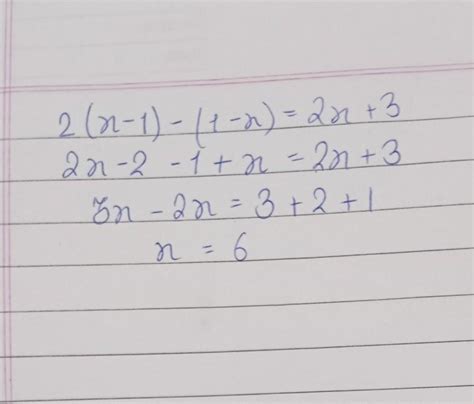 2(x-1)-(1-x)=2x+3
2x-2-1+x=2x+3
3x-2x=3+2+1
x=6